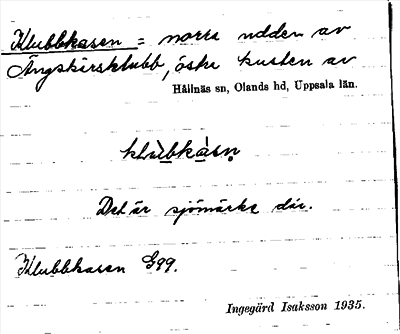 Klubbkasen = norra udden av
Ängskärsklubb, östra kusten av
Hållnäs sn, Olands hd, Uppsala län.
Det är sjömärke där.
Klubbkasen E99.
Ingegärd Isaksson 1935.